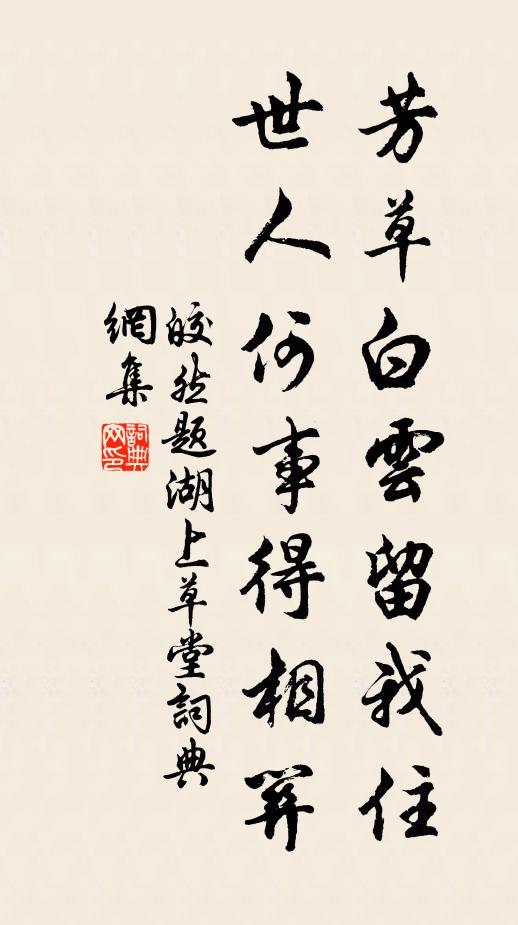 芳草白雲留我住
世人何事得相關
皎然題湖上草堂詞典
網集
詞典
网印